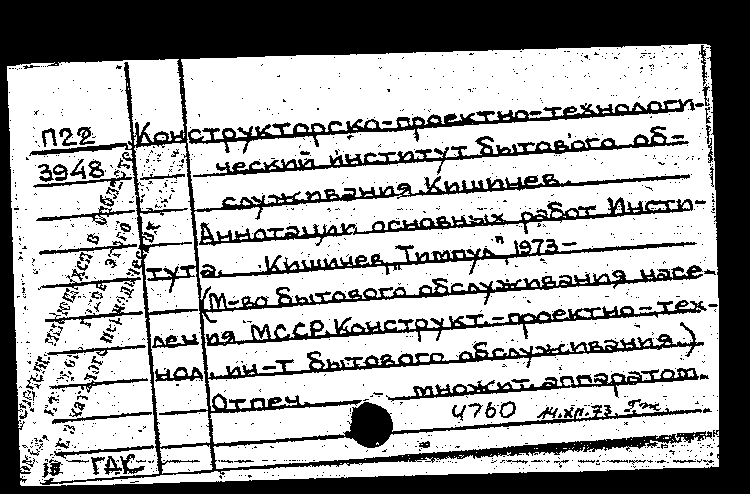 П22 Конструкторско-проектно-технологи-
3948 ческий институт бытового об-
служивания. Кишинев.
Аннотации основных работ Инсти-
тута. Кишинев, "Тимпул", 1973-
(М-во бытового обслуживания насе-
ления МССР. Конструкт.-проектно-тех-
нол. ин-т бытового обслуживания.)
Отпеч. множит. аппаратом.
4760 14.XII.73.
ГАК